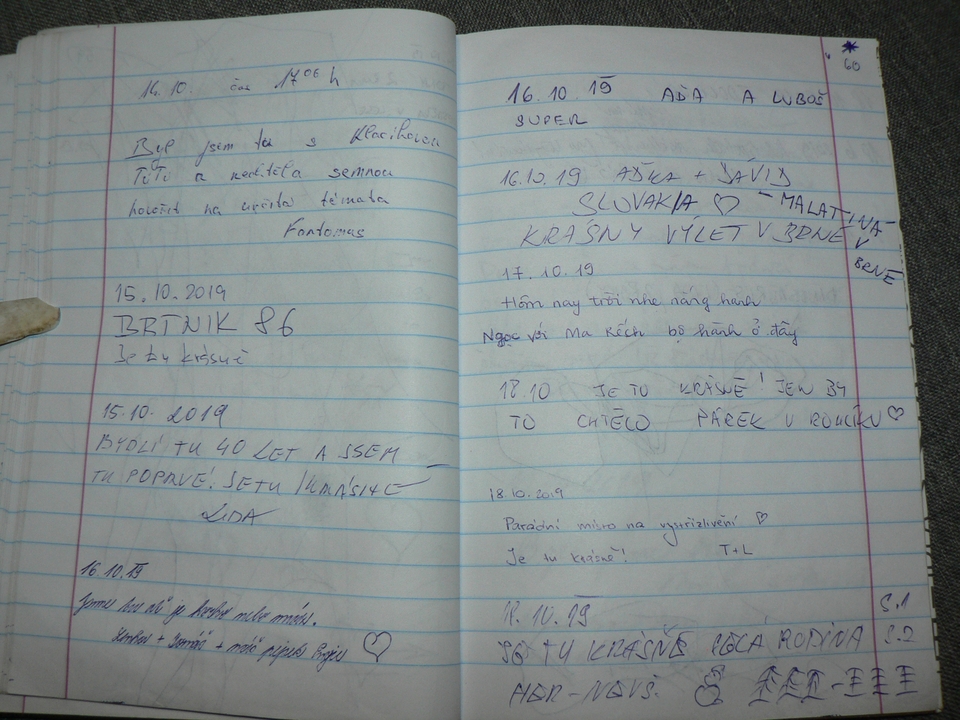 16.10. čas 17 06 h
Byl jsem tu s
TuTu a nechtěla semnou
hovořit na určitá témata
Fantomas
15.10.2019
BRTNIK 86
Je tu krásně
15.10. 2019
BYDLÍ TU 40 LET A JSEM
TU POPRVÉ! JE TU KRÁSNĚ
LÍDA
16.10.19
Jsme
+ Tomáš + náš
* 60
16.10.19 AĎA A LUBOŠ
SUPER
16.10.19 AĎKA + DÁVID
SLOVAKIA ♡ - MALATINÁ
KRÁSNY VÝLET V BRNĚ V
BRNĚ
17.10.19
Hôm nay trời nhẹ nắng hanh
Ngọc với Ma Kếch bộ hành ở đây
18.10 JE TO KRÁSNÉ! JEN BY
TO CHTĚLO PÁREK V ROHLÍKU ♡
18.10.2019
Parádní místo na vystřízlivění ♡
Je tu krásně! T+L
18.10.19 S.1
JE TU KRÁSNĚ CELÁ RODINA S.2